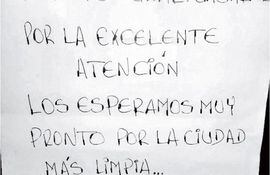 POR LA EXCELENTE
ATENCIÓN
LOS ESPERAMOS MUY
PRONTO POR LA CIUDAD
MÁS LIMPIA...